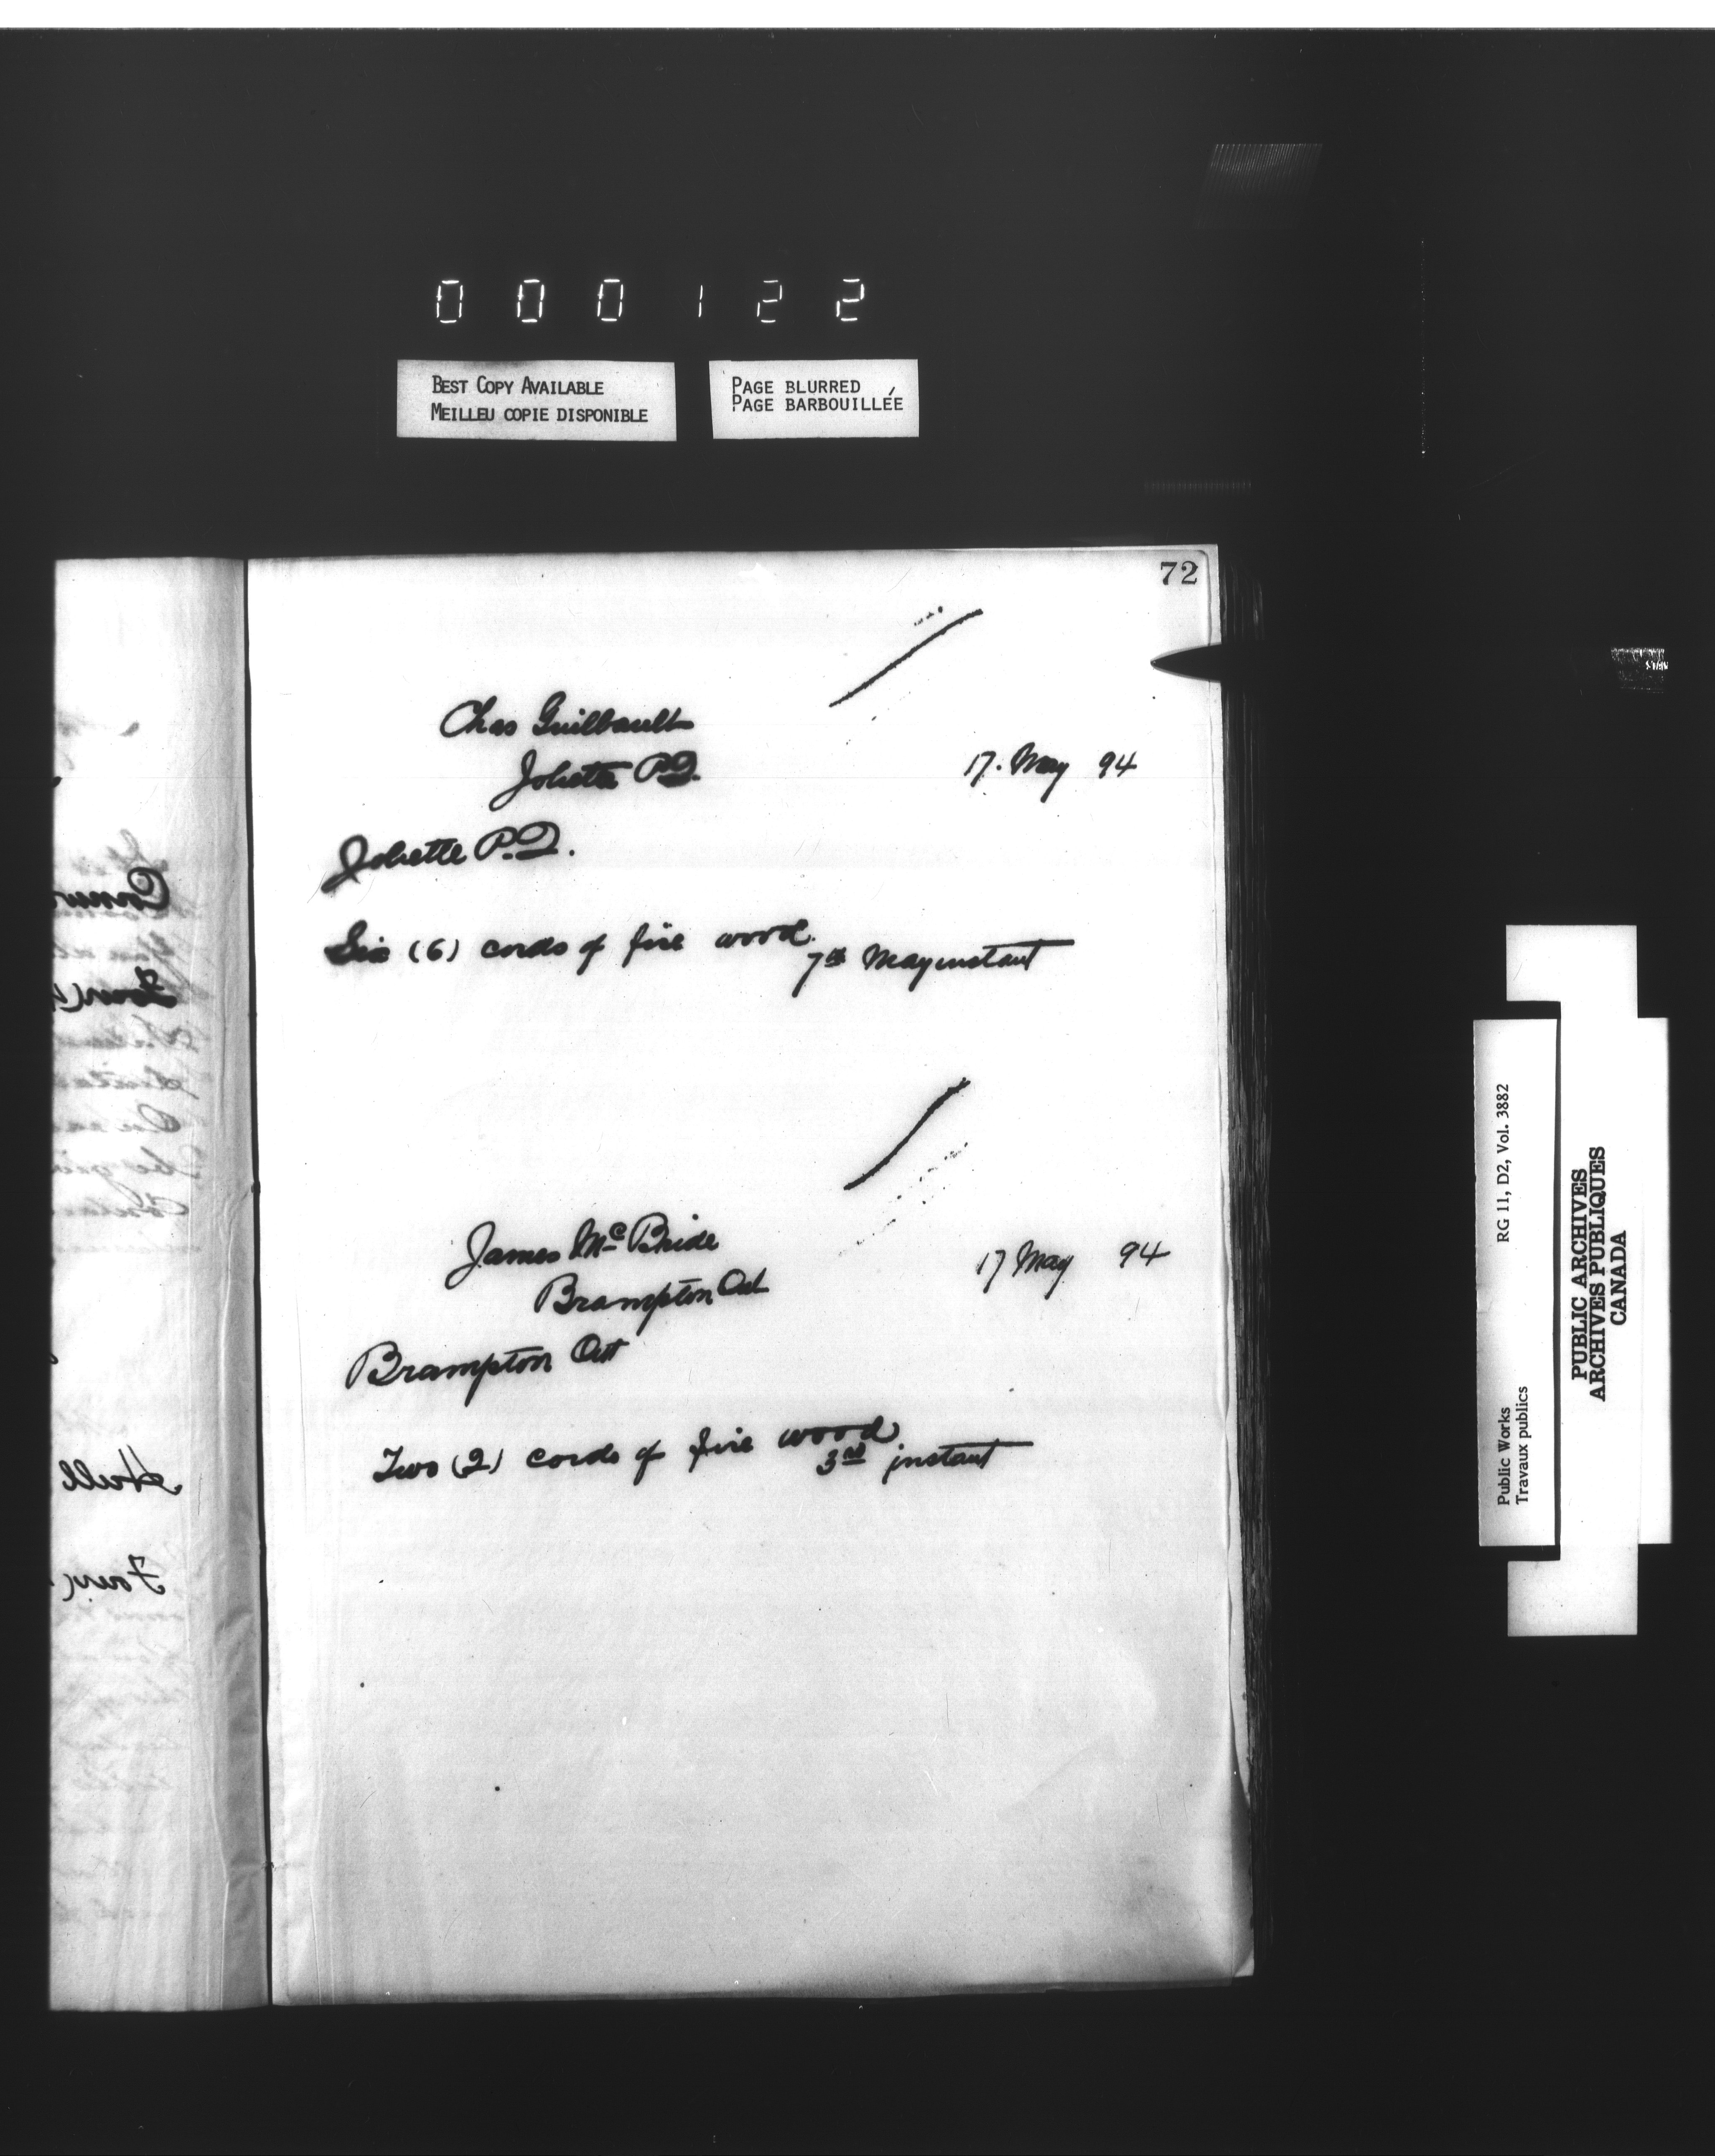 000122
BEST COPY AVAILABLE
MEILLEU COPIE DISPONIBLE
PAGE BLURRED
PAGE BARBOUILLÉE
72
Chas Guilbault
Joliette P.Q.
17. May 94
Joliette P.Q.
Six (6) cords of fire wood
7th May instant
James McBride
Brampton Ont
17 May 94
Brampton Ont
Two (2) cords of fire wood
3rd instant
Hull
Four (
Public Works
Travaux publics
RG 11, D2, Vol. 3882
PUBLIC ARCHIVES
ARCHIVES PUBLIQUES
CANADA